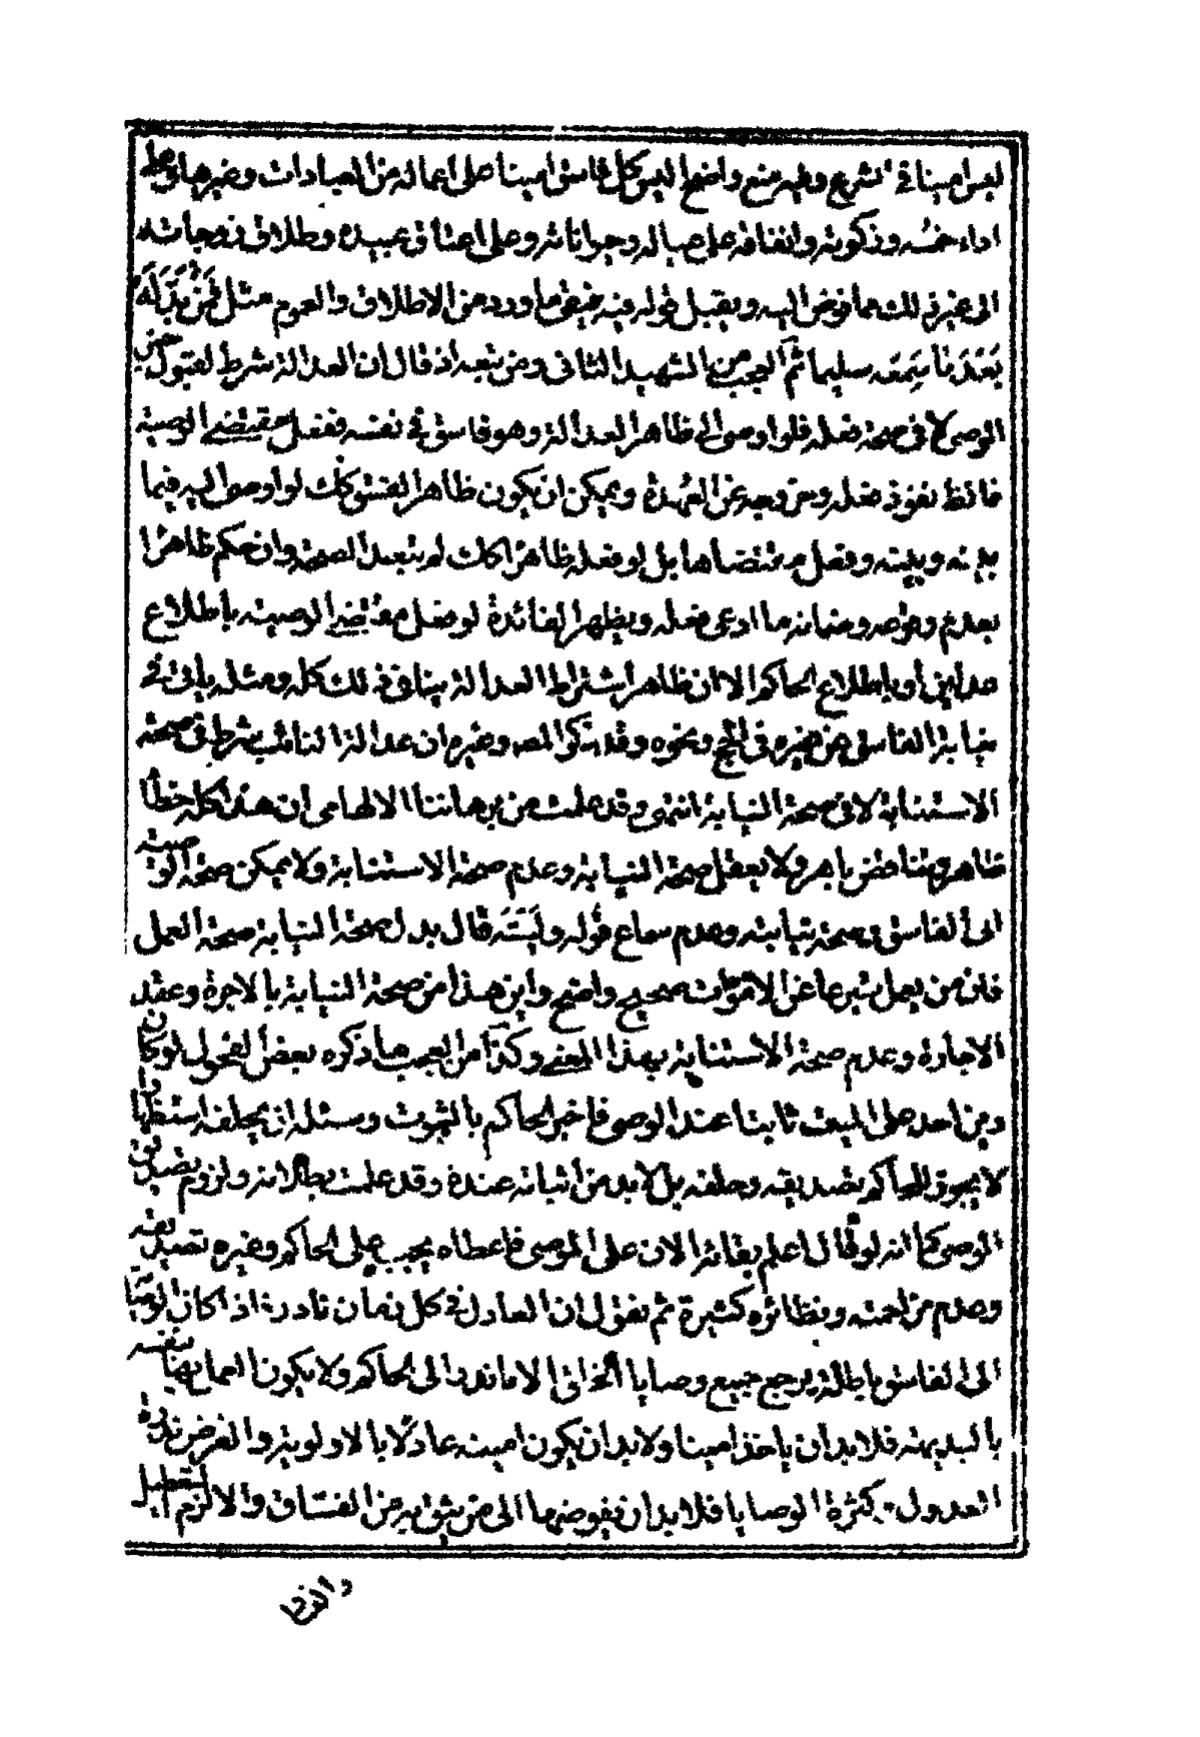 ليس امينا في الشرع وفيه منع واضح اليس كل فاسق امينا على اعماله من العبادات وغيرها وعلى
اداء خمسه وزكوته وانفاقه على عياله وحيواناته وعلى اعتاق عبيده وطلاق زوجاته
الى غير ذلك مما فوض اليه ويقبل قوله فيه فيبقى ما ورد من الاطلاق والعموم مثل فَمَنْ بَدَّلَهُ
بَعْدَ مٰا سَمِعَه سليما ثم العجب من الشهيد الثاني ومن تبعه اذ قال ان العدالة شرط لقبول
الوصي لا في صحة فعله فلو اوصى الى ظاهر العدالة وهو فاسق في نفسه ففعل مقتضى الوصية
فالظ نفوذ فعله وخروجه عن العهدة ويمكن ان يكون ظاهر الفسق كك لو اوصى اليه فيما
بينه وبينه وفعل مقتضاها بل لو فعله ظاهرا كك لم تبعد الصحة وان حكم ظاهرا
بعدم وقوعه وضمانه ما ادعى فعله ويظهر الفائدة لو فعل مقتضى الوصية باطلاع
عدلين او باطلاع الحاكم الا ان ظاهر اشتراط العدالة ينافي ذلك كله ومثله ياتي في
نيابة الفاسق عن غيره في الحج ونحوه وقد ذكر المصه وغيره ان عدالة النائب شرط في صحة
الاستنابة لا في صحة النيابة انتهى وقد علمت من برهاننا الالهامي ان هذا كله خطأ
ظاهر وتناقض باهر ولا يعقل صحة النيابة وعدم صحة الاستنابة ولا يمكن صحة الوصية
الى الفاسق وصحة نيابته وعدم سماع قوله وليته قال بدل صحة النيابة صحة العمل
فان من يعمل تبرعا عن الاموات صحيح واضح واين هذا من صحة النيابة بالاجرة وعقد
الاجارة وعدم صحة الاستنابة بهذا المعنى وكذا من العجب ما ذكره بعض الفحول لو كان
دين احد على الميت ثابتا عند الوصي فاخبر الحاكم بالثبوت وسئله ان يحلفه استظهارا
لا يجوز للحاكم تصديقه وحلفه بل لا بد من اثباته عنده وقد علمت بطلانه ولزوم تصديق
الوصي كما انه لو قال اعلم بقائه الان على الموصي فاعطاه يجب على الحاكم وغيره تصديقه
وعدم مزاحمته ونظائره كثيرة ثم نقول ان العادل في كل زمان نادر اذا كان الوصايا
الى الفاسق باطلة يرجع جميع وصايا الخلائق الا ما ندر الى الحاكم ولا يكون اعمالها بنفسه
بالبديهة فلا بد ان ياخذ امينا ولا بد ان يكون امينه عادلا بالاولوية والفرض ندرة
العدول كثرة الوصايا فلا بد ان يفوضها الى من يثق به من الفساق والا لزم التعطيل